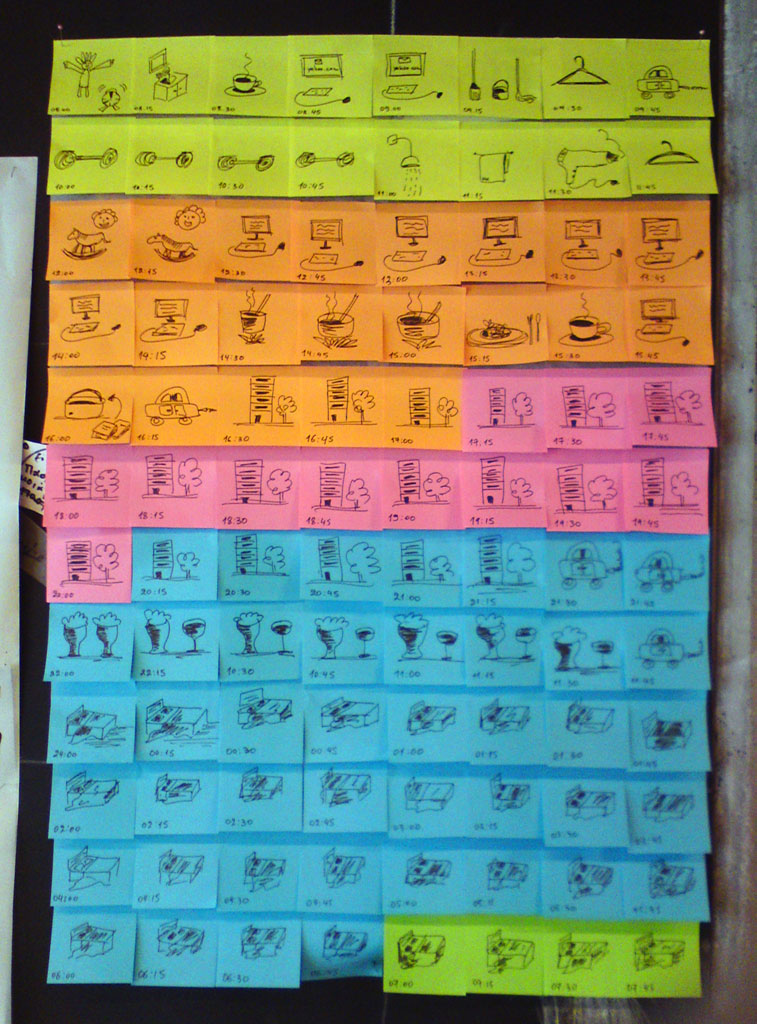 yahoo.com yahoo.com
08:00 08:15 08:30 08:45 09:00 09:15 09:30 09:45
10:00 10:15 10:30 10:45 11:00 11:15 11:30 11:45
12:00 12:15 12:30 12:45 13:00 13:15 13:30 13:45
14:00 14:15 14:30 14:45 15:00 15:15 15:30 15:45
16:00 16:15 16:30 16:45 17:00 17:15 17:30 17:45
18:00 18:15 18:30 18:45 19:00 19:15 19:30 19:45
20:00 20:15 20:30 20:45 21:00 21:15 21:30 21:45
22:00 22:15 10:30 10:45 11:00 11:15 11:30 11:45
24:00 00:15 00:30 00:45 01:00 01:15 01:30 01:45
02:00 02:15 02:30 02:45 03:00 03:15 03:30 03:45
04:00 04:15 04:30 04:45 05:00 05:15 05:30 05:45
06:00 06:15 06:30 06:45 07:00 07:15 07:30 07:45